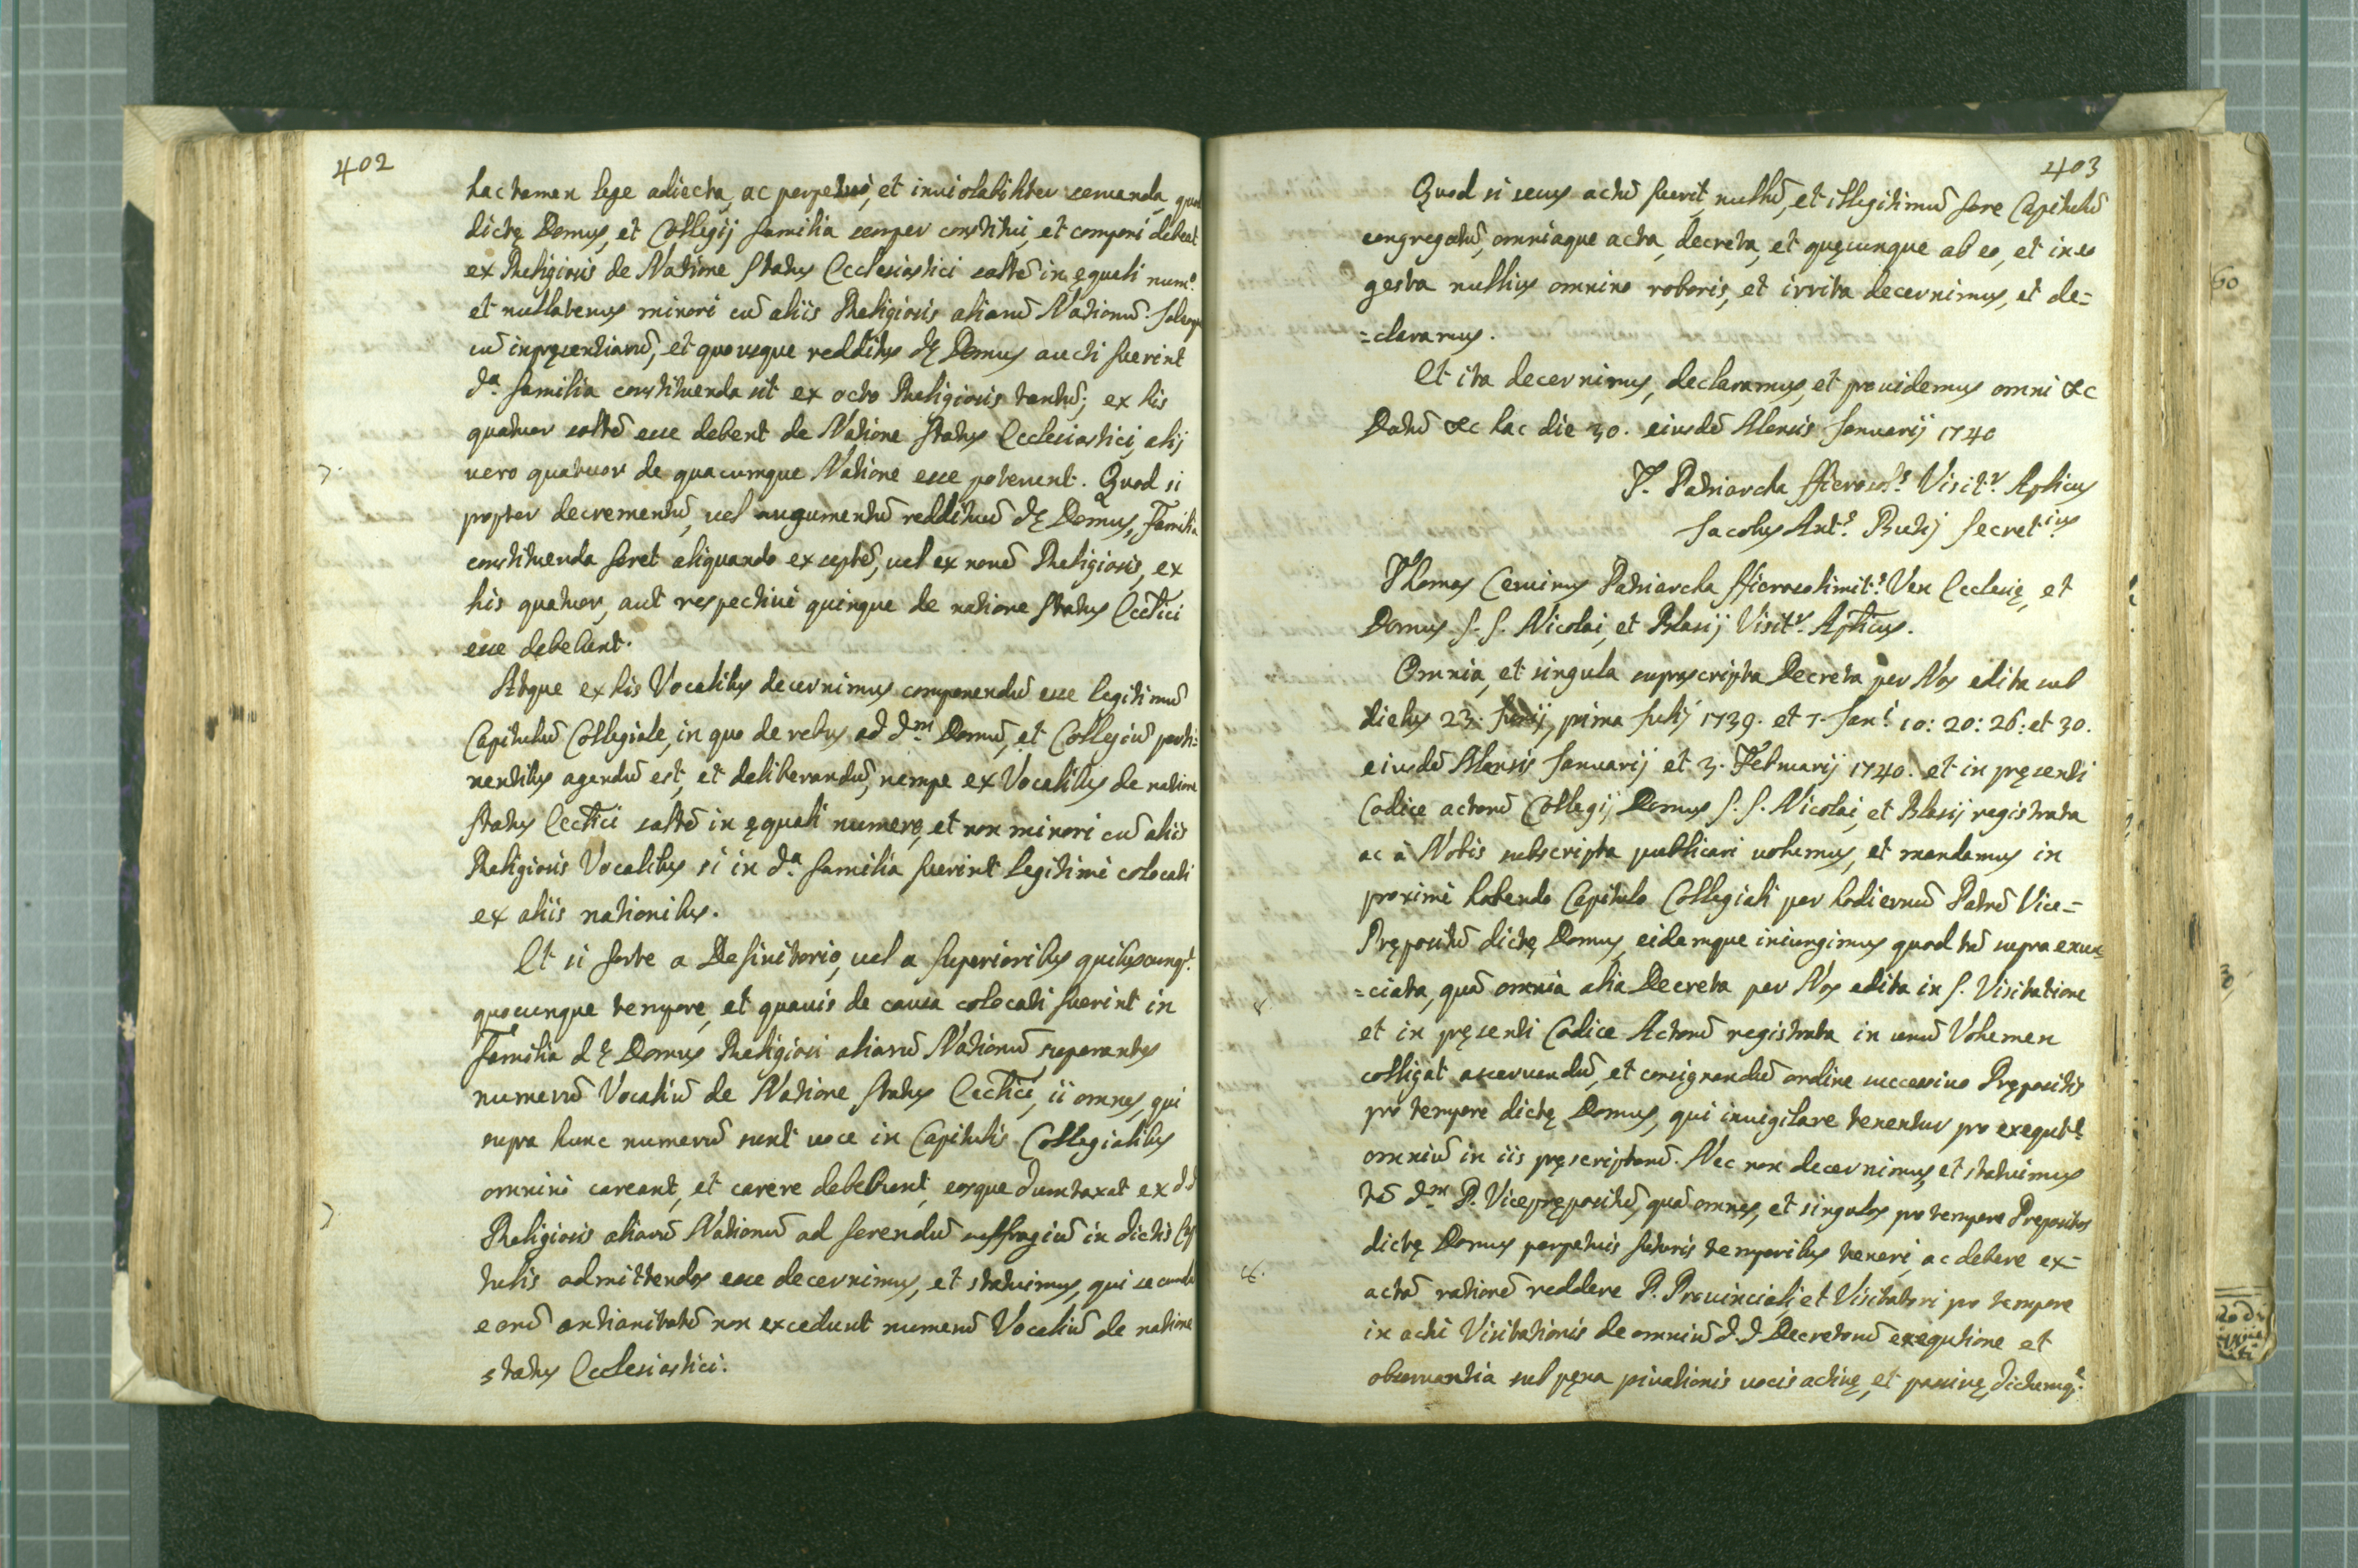 402
hac tamen lege adiecta, ac perpetuò, et inuiolabiliter seruanda, quod
dictę Domus, et Collegij familia semper constitui, et componi debeat
ex Religiosis de Natione Status Ecclesiastici saltē in ęquali num.º
et nullatenus minori cū aliis Religiosis aliarū Nationū.
cū inpręsentiarū, et quousque redditus dę Domus aucti fuerint
d.ª familia constituenda sit ex octo Religiosis tantū; ex his
quatuor saltē esse debent de Natione Status Ecclesiastici, alij
vero quatuor de quacumque Natione esse poterunt. Quod si
propter decrementū, uel augumentū reddituū dę Domus, Familia
constituenda foret aliquando ex septē, uel ex nouē Religiosis, ex
his quatuor, aut respectiuè quinque de natione Status Ecctici
esse debebunt.
Atque ex his Vocalibus decernimus componendū esse legitimū
Capitulū Collegiale, in quo de rebus ad d.m Domū, et Collegiū perti=
nentibus agendū est, et deliberandū, nempe ex Vocalibus de natione
Status Ecctici saltē in ęquali numero, et non minori cū aliis
Religiosis Vocalibus si in d.ª familia fuerint legitimè colocati
ex aliis nationibus.
Et si forte a Definitorio, uel a Superioribus quibuscunq.e
quocunque tempore, et quauis de causa colocati fuerint in
Familia dę Domus Religiosi aliarū Nationū superantes
numerū Vocaliū de Natione Status Ecctici, ii omnes, qui
supra hunc numerū sunt uoce in Capitulis Collegialibus
omnino careant, et carere debebunt, eosque dumtaxat ex dd
Religiosis aliarū Nationū ad ferendū suffragiū in dictis Capi
tulis admittendos esse decernimus, et statuimus, qui secundū
eorū antianitatē non excedunt numerū Vocaliū de natione
status Ecclesiastici.
403
Quod si secus actū fuerit, nullū, et illegitimū fore Capitulū
congregatū, omniaque acta, decreta, et quęcunque ab eo, et in eo
gesta nullius omnino roboris, et irrita decernimus, et de=
=claramus.
Et ita decernimus, declaramus, et prouidemus omni &c
Datū &c hac die 30. eiusdē Mensis Januarij 1740
T. Patriarcha Hierosol.s Visit.r Aplicus
Jacobus Ant.s Secret.ius
Thomas Ceruinus Patriarcha Hierosolimit.s Ven Ecclesię, et
Domus S. S. Nicolai, et Blasij Visit.r Aplicus.
Omnia, et singula suprascripta Decreta per Nos edita sub
diebus 23. Junij, prima Julij 1739. et 7. Jan.i 10: 20: 26: et 30.
eiusdē Mensis Januarij et 3. Februarij 1740. et in pręsenti
Codice actorū Collegij Domus S. S. Nicolai, et Blasij registrata
ac à Nobis subscripta publicari uolumus, et mandamus in
proximè habendo Capitulo Collegiali per hodiernū Patrē Vice=
Prępositū dictę Domus, eidemque iniungimus quod tā supra enun
=ciata, quā omnia alia Decreta per Nos edita in S. Visitatione
et in pręsenti Codice Actorū registrata in unū Volumen
colligat asseruandū, et consignandū ordine successiuo Prępositis
pro tempore dictę Domus, qui inuigilare tenentur pro exequt.e
omniū in iis pręscriptorū. Nec non decernimus, et statuimus
tā d.m P. Viceprępositū, quā omnes, et singulos pro tempore Prepositos
dictę Domus perpetuis futuris temporibus teneri, ac debere ex=
actā rationē reddere P. Prouinciali et Visitatori pro tempore
in actu Visitationis de omniū d.d. Decretorū exequtione et
obseruantia sub pęna priuationis uocis actiuę, et passiuę, dictumq.e